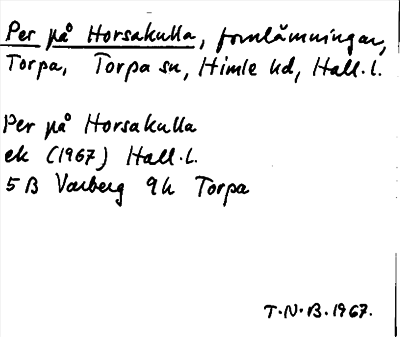 Per på Horsakulla, fornlämningar,
Torpa, Torpa sn, Himle hd, Hall. l.
Per på Horsakulla
ek (1967) Hall. l.
5 B Varberg 9h Torpa
T.N.B. 1967.